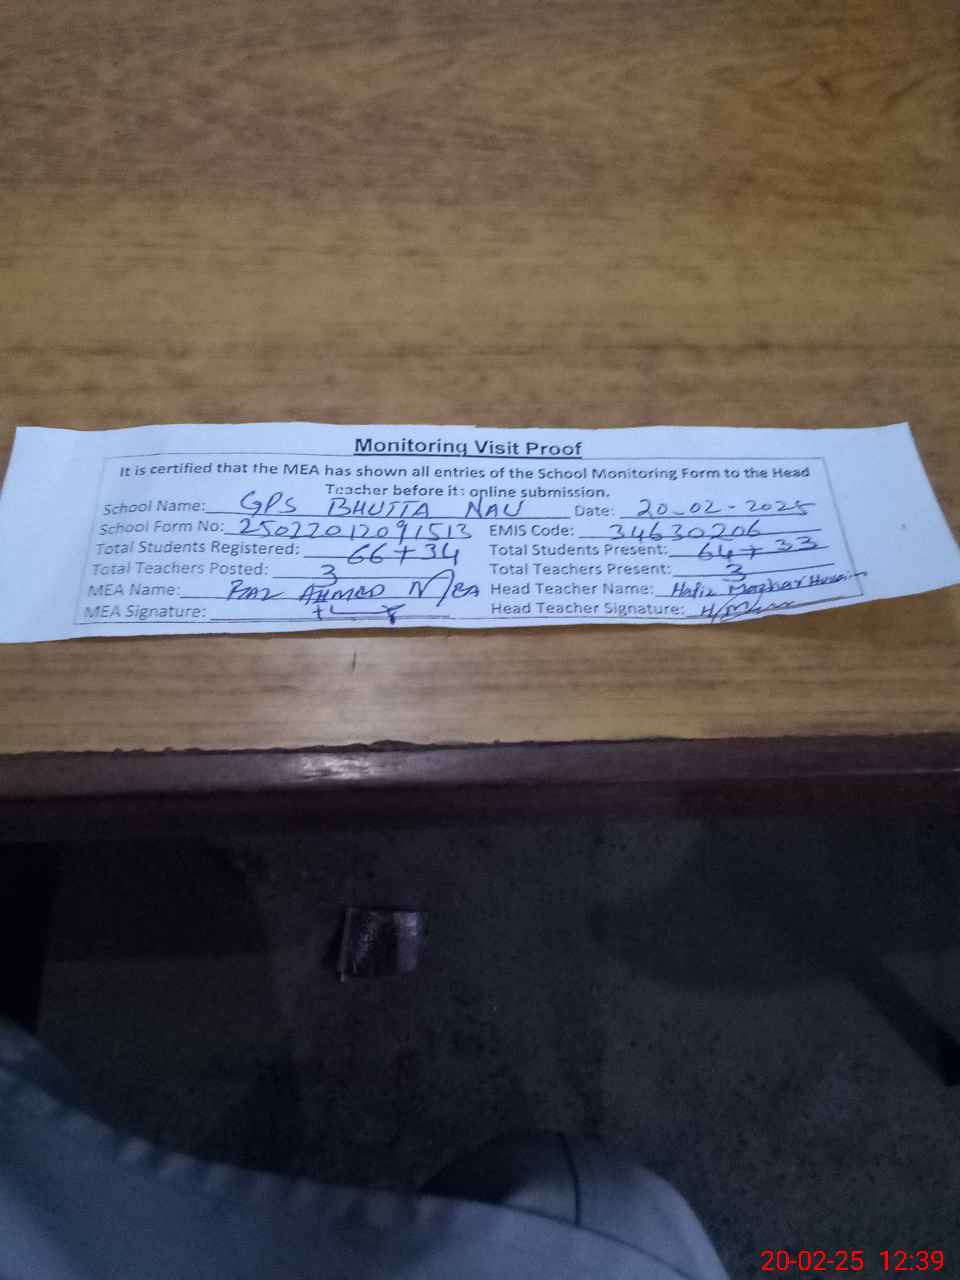 Monitoring Visit Proof
It is certified that the MEA has shown all entries of the School Monitoring Form to the Head
Teacher before it: online submission.
School Name: GPS BHUTTA NAU Date: 20-02-2025
School Form No: 25022012091513 EMIS Code: 34630206
Total Students Registered: 66+34 Total Students Present: 64+33
Total Teachers Posted: 3 Total Teachers Present: 3
MEA Name: AHMED MEA Head Teacher Name: Hafiz Mazhar Hussain
MEA Signature: Head Teacher Signature:
20-02-25 12:39